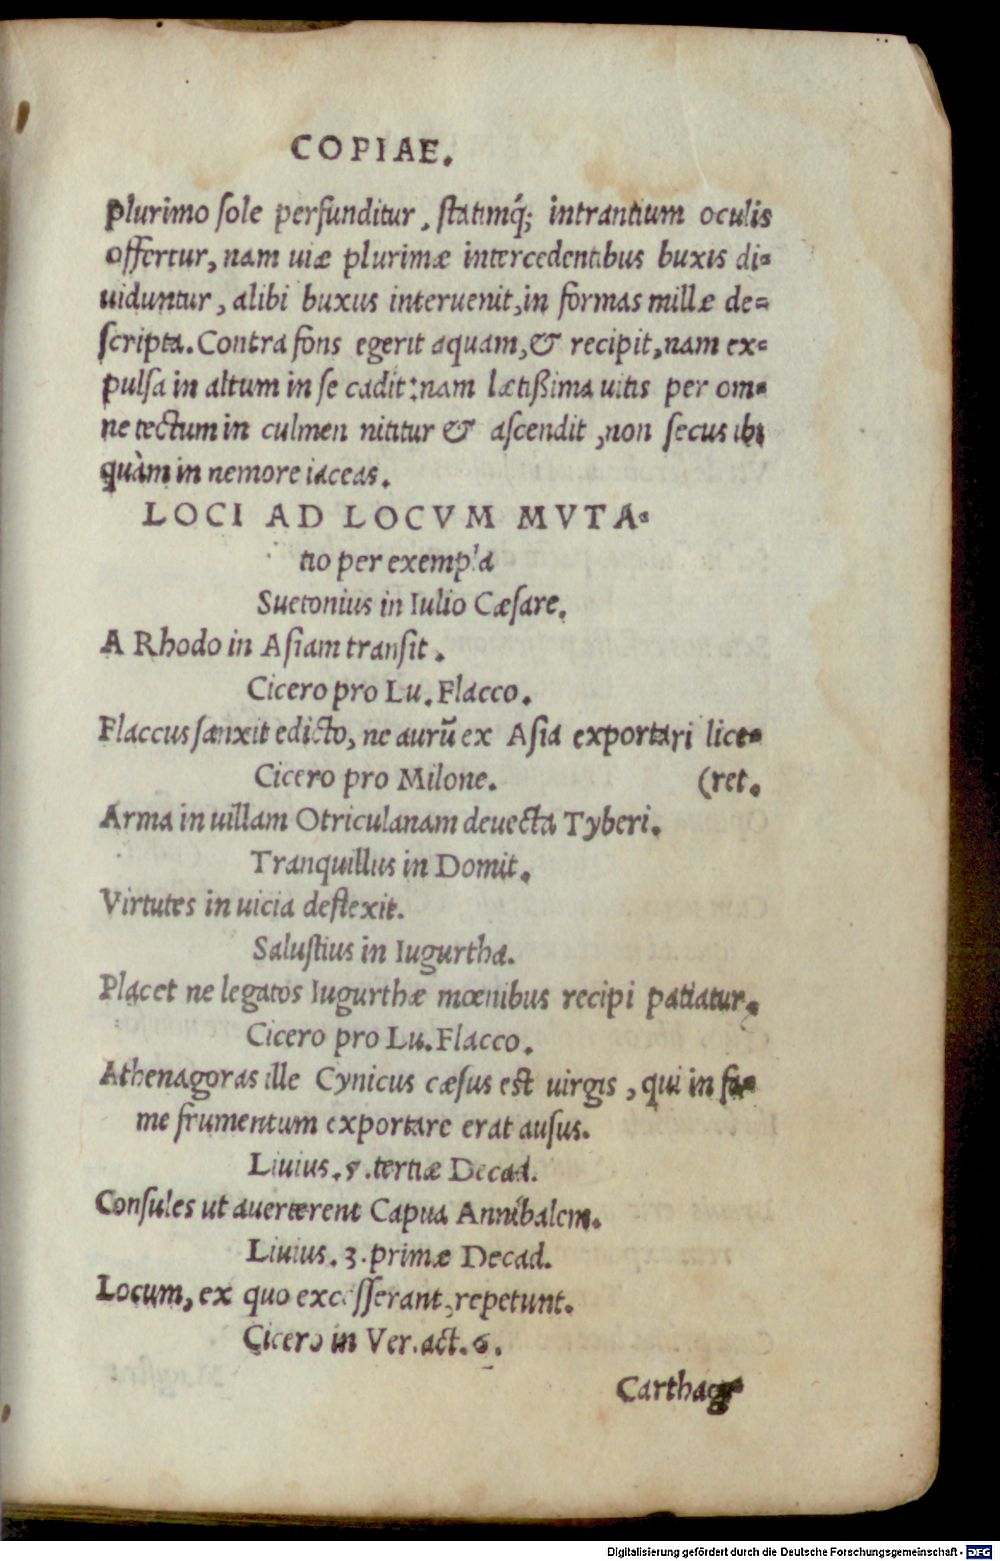 COPIAE.
plurimo sole perfunditur, statimq́; intrantium oculis
offertur, nam uiæ plurimæ intercedentibus buxis di-
uiduntur, alibi buxus interuenit, in formas mille de-
scripta. Contra fons egerit aquam, & recipit, nam ex-
pulsa in altum in se cadit: nam lætißima uitis per om-
ne tectum in culmen nititur & ascendit, non secus ibi
quàm in nemore iaceas.
LOCI AD LOCVM MVTA-
tio per exempla
Suetonius in Iulio Cæsare.
A Rhodo in Asiam transit.
Cicero pro Lu. Flacco.
Flaccus sanxit edicto, ne aurū ex Asia exportari lice-
Cicero pro Milone. (ret.
Arma in uillam Otriculanam deuecta Tyberi.
Tranquillus in Domit.
Virtutes in uicia deflexit.
Salustius in Iugurtha.
Placet ne legatos Iugurthæ mœnibus recipi patiatur.
Cicero pro Lu. Flacco.
Athenagoras ille Cynicus cæsus est uirgis, qui in fa-
me frumentum exportare erat ausus.
Liuius. 5. tertiæ Decad.
Consules ut auerterent Capua Annibalem.
Liuius. 3. primæ Decad.
Locum, ex quo excesserant, repetunt.
Cicero in Ver. act. 6.
Carthag-
Digitalisierung gefördert durch die Deutsche Forschungsgemeinschaft - DFG